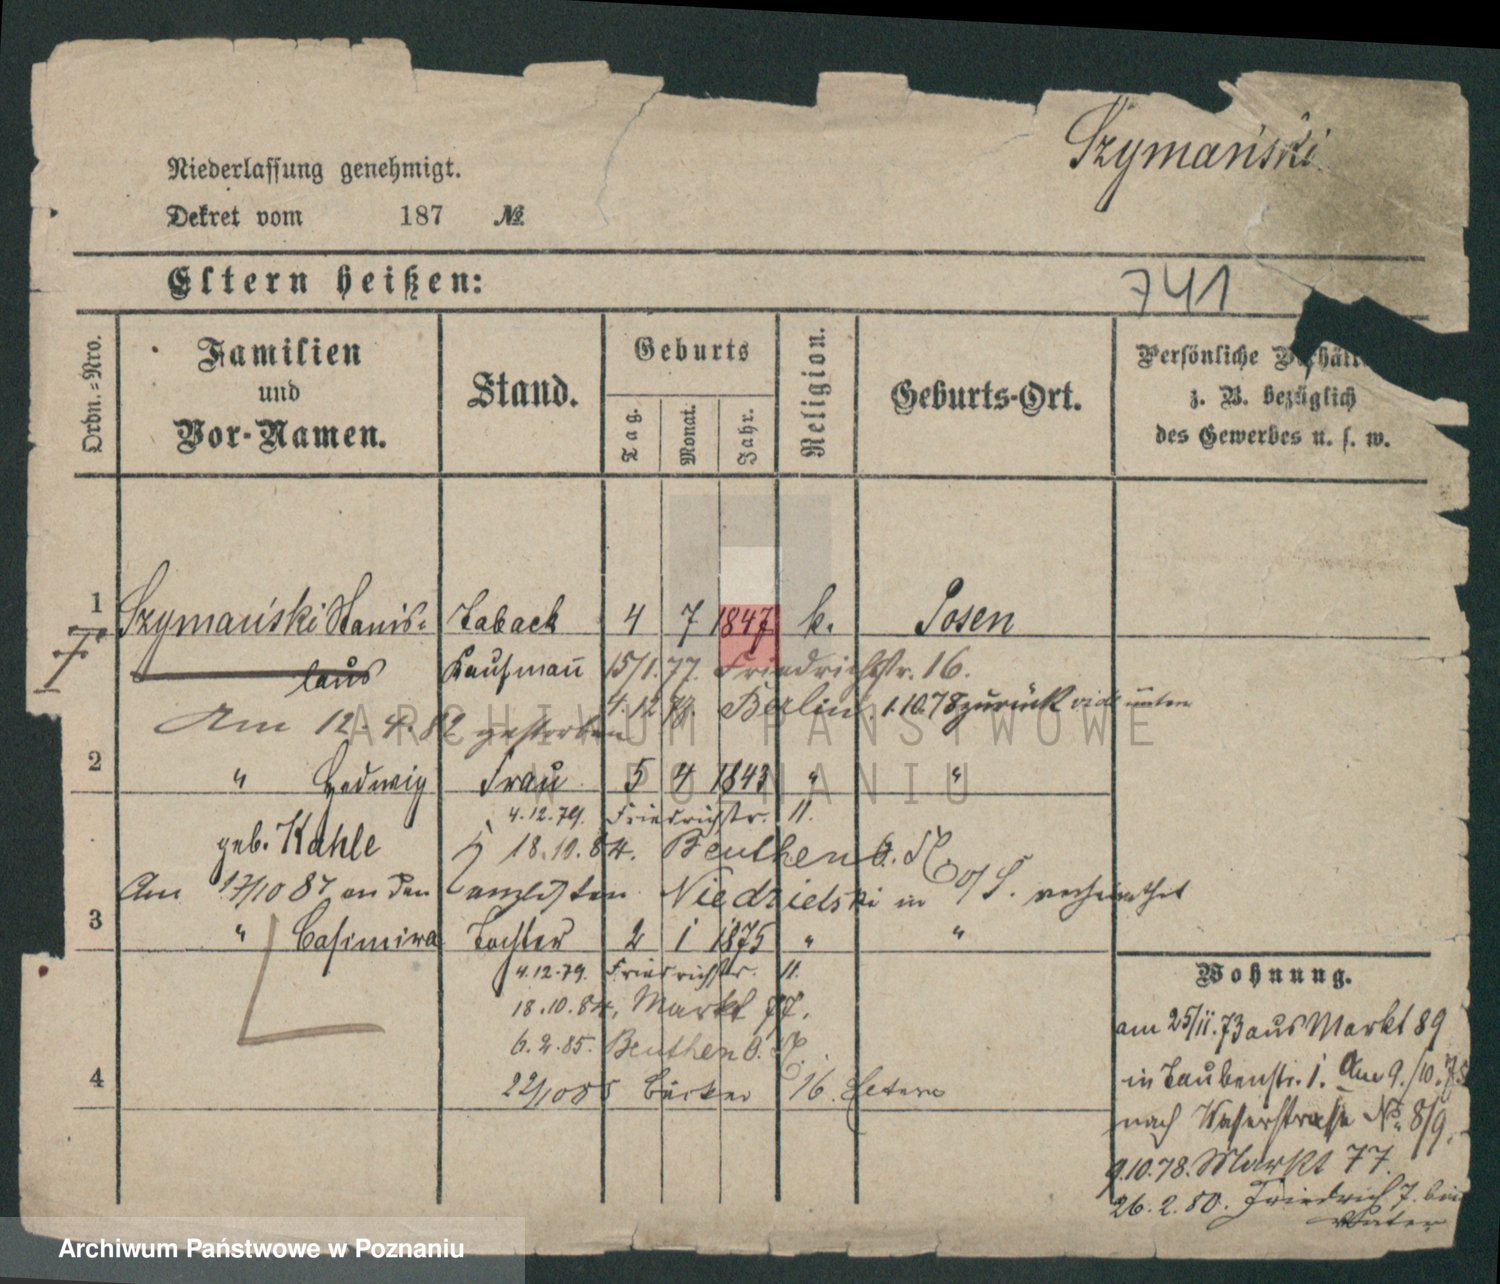 Szymański
Niederlassung genehmigt.
Dekret vom 187 №
Eltern heißen:
741
Ordn.-Nro.
Familien
und
Vor-Namen.
Stand.
Geburts
Tag.
Monat.
Jahr.
Religion.
Geburts-Ort.
Persönliche
z. B. bezüglich
des Gewerbes u. s. w.
1 Szymański Stanis- Taback 4 7 1847 k. Posen
laus Kaufmann 15/1.77. Friedrichstr. 16.
4.12.79. Berlin. 1.10.78 zurück unten
Am 12.4.82 gestorben
2 " Hedwig Frau 5 4 1843 " "
4.12.79. Friedrichstr. 11.
geb. Kahle 18.10.84. Beuthen O.S.
Am 17/10 87 an den Niedzielski in O/S. verheirathet
3 " Casimira Tochter 2 1 1875 " "
4.12.79. Friedrichstr. 11.
18.10.84. Markt 77.
6.2.85. Beuthen O.S.
4 22/10 85 16.
Wohnung.
am 25/11.73 aus Markt 89
in Taubenstr. 1. Am 9./10.
nach № 8/9.
9.10.78. Markt 77.
26.2.80. Friedrich 7. bei
Vater
ARCHIWUM PAŃSTWOWE
W POZNANIU
Archiwum Państwowe w Poznaniu